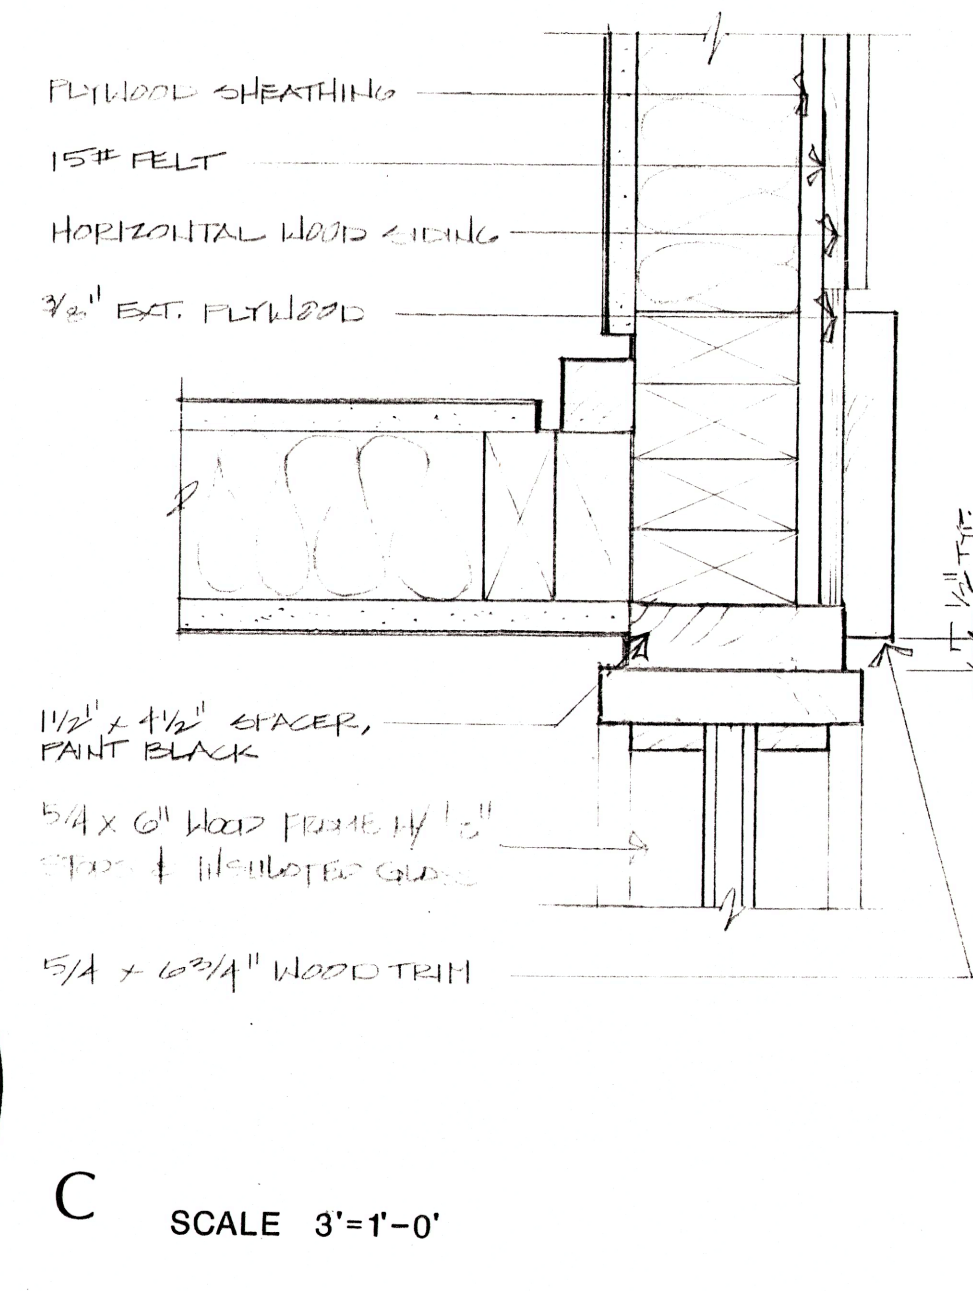 PLYWOOD SHEATHING
15# FELT
HORIZONTAL WOOD SIDING
3/8" EXT. PLYWOOD
1 1/2" TYP.
1 1/2" x 4 1/2" SPACER,
PAINT BLACK
5/4 x 6" WOOD FRAME W/
STOPS & INSULATED GLASS
5/4 x 6 3/4" WOOD TRIM
C
SCALE 3'=1'-0'